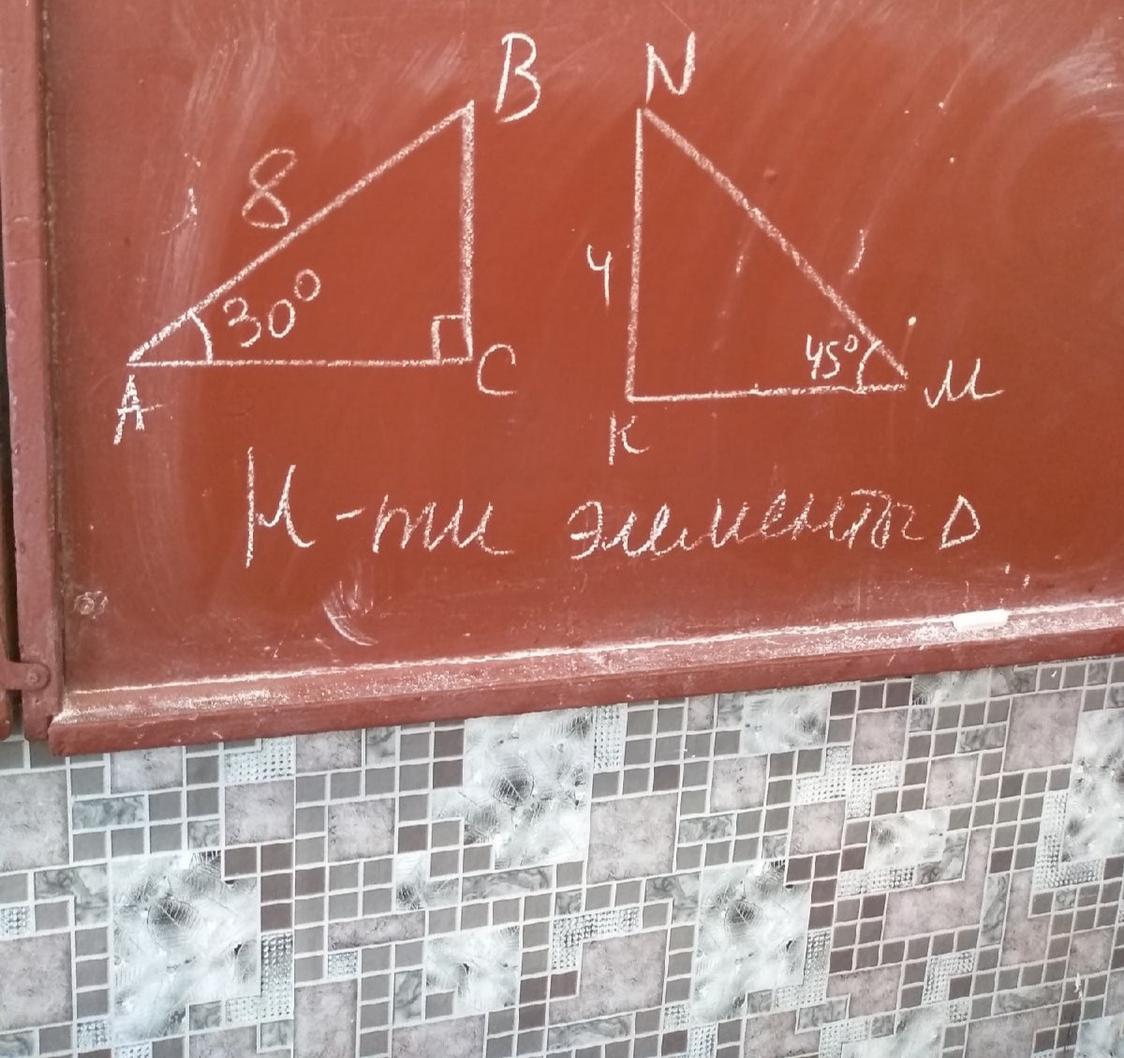 B N
8
30°
4
45°
A C K M
Н-ти элементы Δ